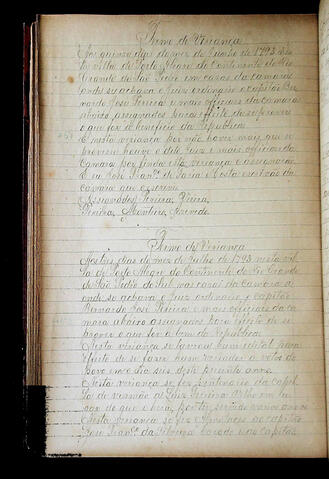 Termo de Veriança
Aos quinze dias do mez de Junho de 1793 nes
ta villa de Porto Alegre do Continente do Rio
Grande de São Pedro em cazas da camara
onde se achava o Juiz ordinario o capitão Ber
nardo José Pereira e mais officiaes da camara
abaixo assignados para effeito de se prover
o que for a beneficio da Republica.
E nesta veriança por não haver mais que se
prover houve o dito Juiz e mais officiaes da
camara por finda esta veriança e assignarão.
E eu José Franco de Faria e Costa escrivão da
camara que escrevi.
Assignados Pereira, Vieira,
Monteiro, Azevedo.
Termo de Veriança
Aos tres dias do mez de Julho de 1793 nesta vil
la de Porto Alegre do Continente do Rio Grande
de São Pedro do Sul nas cazas da camara a
onde se achava o Juiz ordinario o capitão
Bernardo José Pereira e mais officiaes da ca
mara abaixo assignados para effeito de se
prover o que for a bem da Republica.
Nesta veriança se lavrou hum edital para
effeito de se fazer hum vereador a votos do
povo em dia seis deste presente anno.
Nesta veriança se fez
José Franco da Silveira Cazado ao capitão